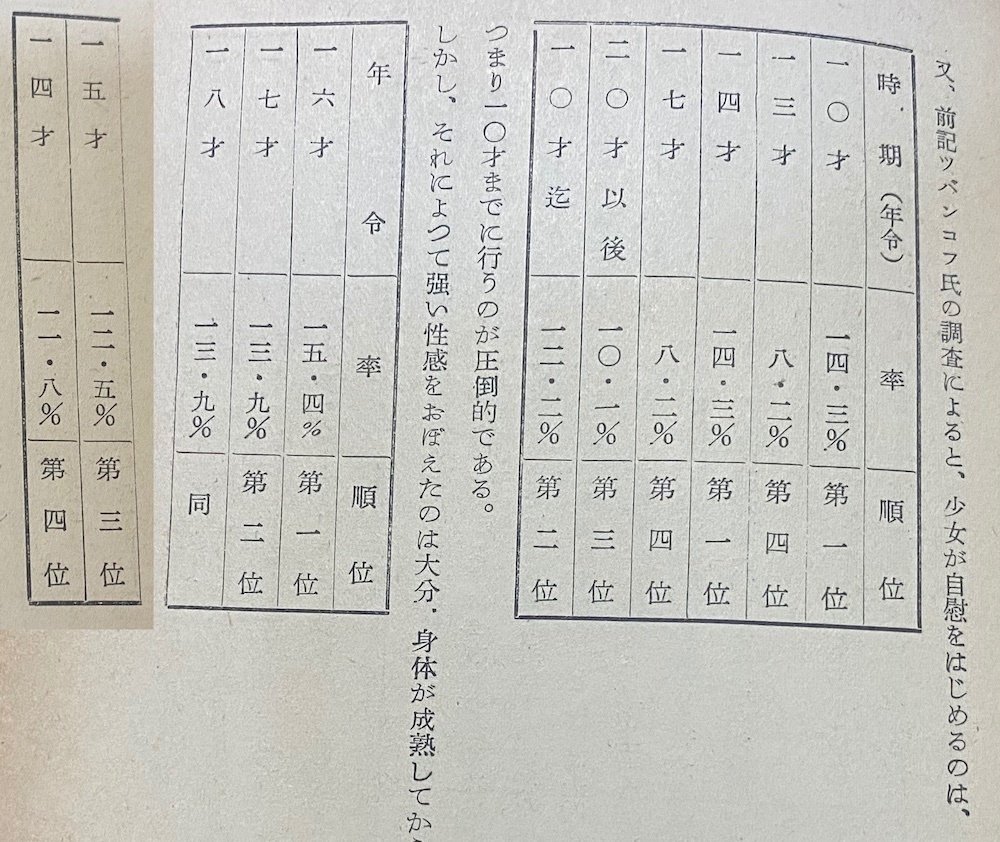 又、前記ツバンコフ氏の調査によると、少女が自慰をはじめるのは、
時期(年令) 率 順位
一〇才 一四・三% 第一位
一三才 八・二% 第四位
一四才 一四・三% 第一位
一七才 八・二% 第四
二〇才以後 一〇・一% 第三位
一〇才迄 一二・二% 第二位
つまり一〇才までに行うのが圧倒的である。
しかし、それによつて強い性感をおぼえたのは大分・身体が成熟してか
年令 率 順位
一六才 一五・四% 第一位
一七才 一三・九% 第二位
一八才 一三・九% 同
一五才 一二・五% 第三位
一四才 一一・八% 第四位